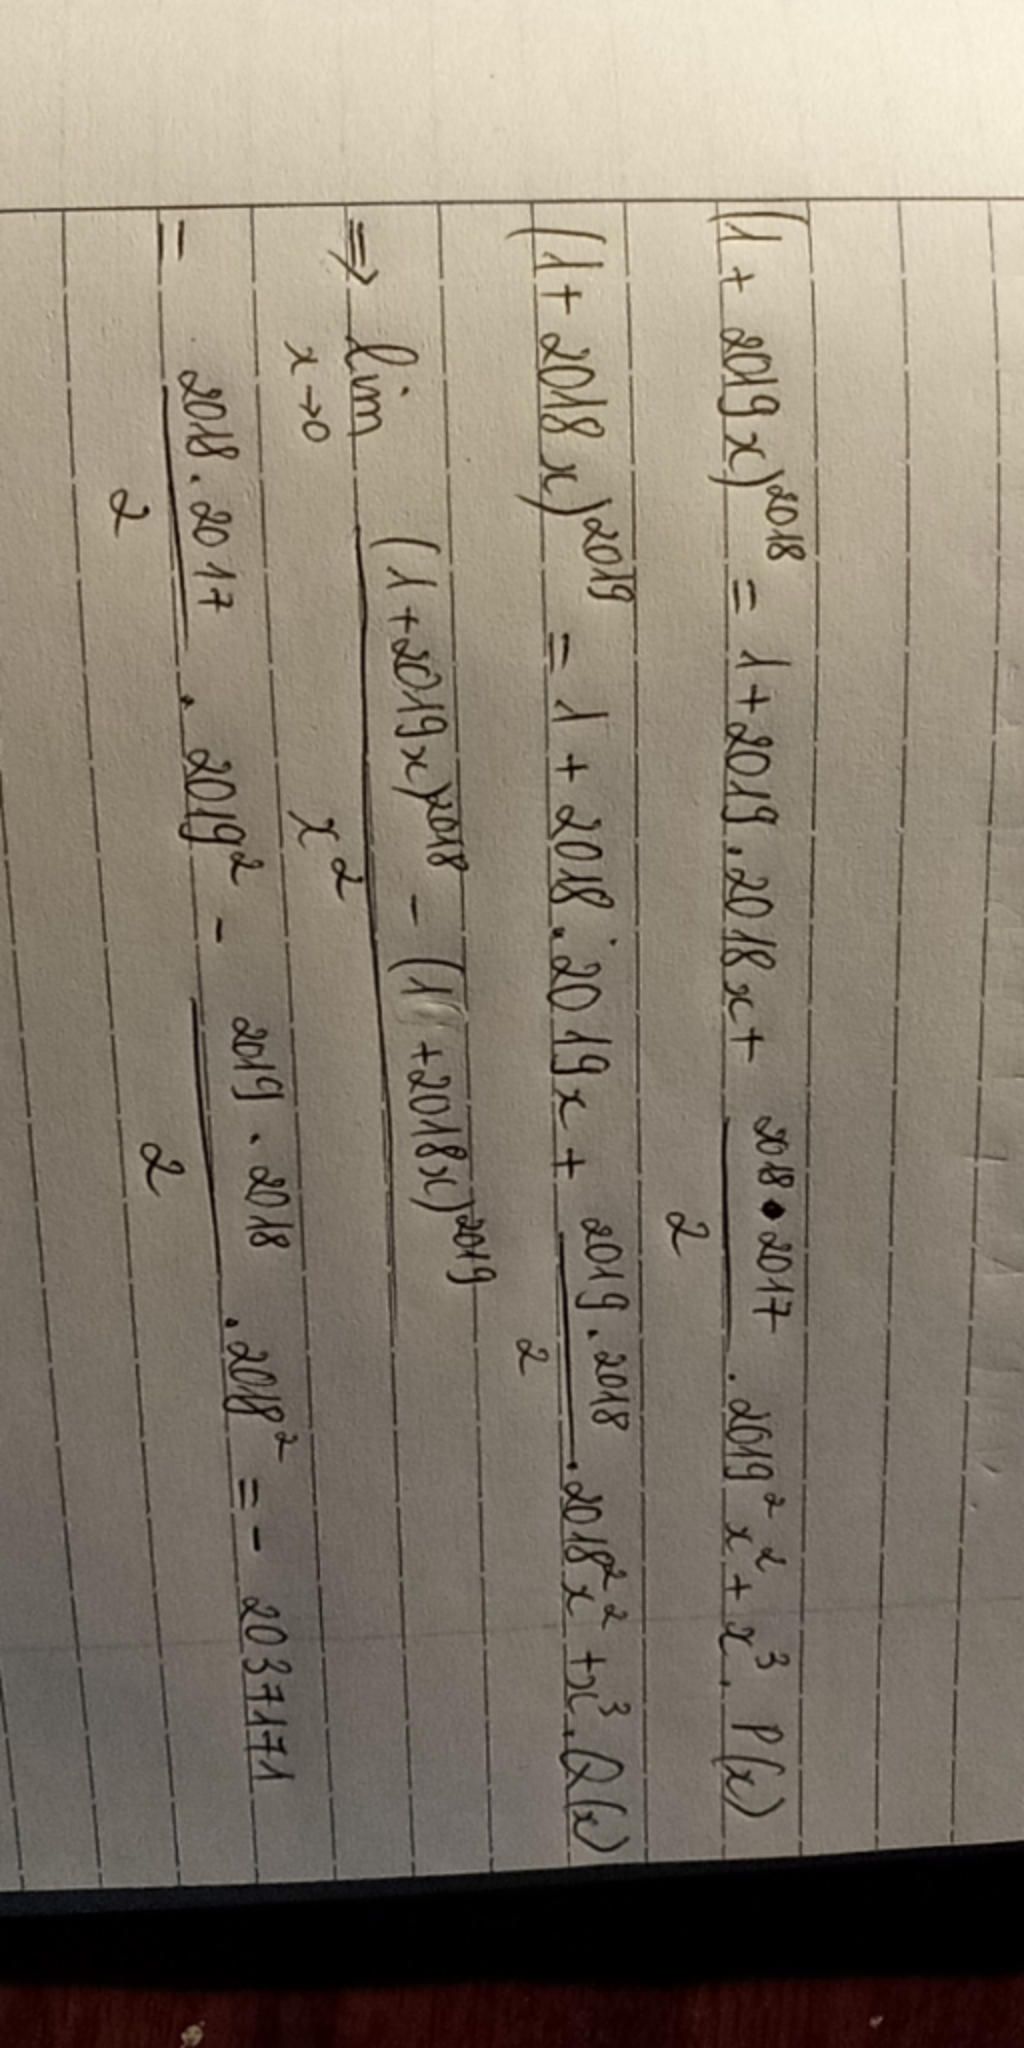 (1 + 2019x)²⁰¹⁸ = 1 + 2019.2018x + 2018.2017/2 . 2019²x² + x³. P(x)
(1 + 2018x)²⁰¹⁹ = 1 + 2018.2019x + 2019.2018/2 . 2018²x² + x³. Q(x)
⇒ lim x→0 (1+2019x)²⁰¹⁸ - (1+2018x)²⁰¹⁹ / x²
= 2018.2017/2 . 2019² - 2019.2018/2 . 2018² = - 2037171